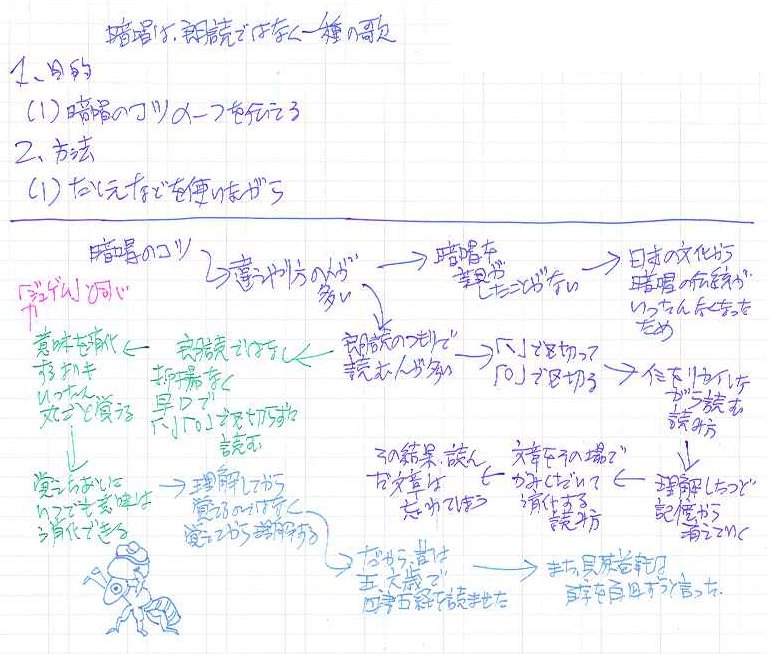 暗唱は、朗読ではなく一種の歌
1、目的
(1) 暗唱のコツの一つを伝える
2、方法
(1) たとえなどを使いながら
暗唱のコツ
違うやり方の人が
多い
暗唱を
したことがない
日本の文化から
暗唱の伝統が
いったんなくなった
ため
朗読のつもりで
読む人が多い
「、」で区切って
「。」で区切る
イミをリカイしな
がら読む
読み方
理解したつど
記憶から
消えていく
文章をその場で
かみくだいて
消化する
読み方
その結果、読ん
だ文章は
忘れてしまう
朗読ではなし
抑揚なく
早口で
「、」「。」で区切らずに
読む
意味を消化
するよりも
いったん
丸ごと覚える
「ジュゲム」と同じ
覚えちゃえば
いつでも意味は
消化できる
理解してから
覚えるのではなく
覚えてから理解する
だから、昔は
五、六歳で
四書五経を読ませた
また、貝原益軒は
百字を百回ずつと言った。